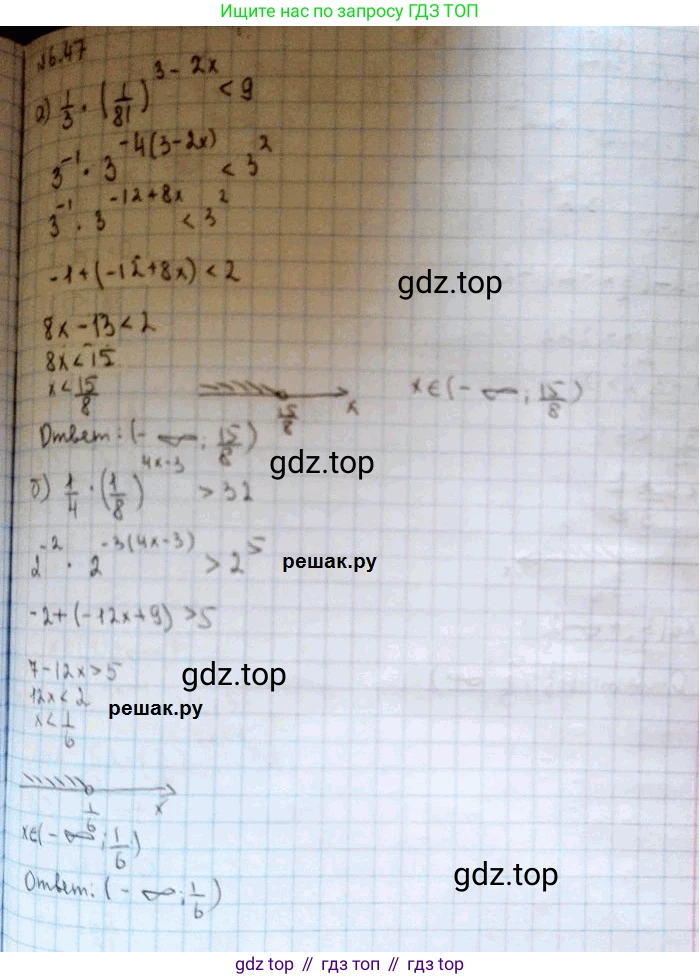 Ищите нас по запросу ГДЗ ТОП
№6.47
а) 1/3 · (1/81)^(3-2x) < 9
3^(-1) · 3^(-4(3-2x)) < 3^2
3^(-1) · 3^(-12+8x) < 3^2
-1+(-12+8x)<2
gdz.top
8x-13<2
8x<15
x<15/8
15/8 x
x∈(-∞; 15/8)
Ответ: (-∞; 15/8)
gdz.top
б) 1/4 · (1/8)^(4x-3) > 32
2^(-2) · 2^(-3(4x-3)) > 2^5
решак.ру
-2+(-12x+9)>5
7-12x>5
gdz.top
12x<2
решак.ру
x<1/6
1/6 x
x∈(-∞; 1/6)
Ответ: (-∞; 1/6)
gdz.top
gdz.top // гдз топ // gdz top